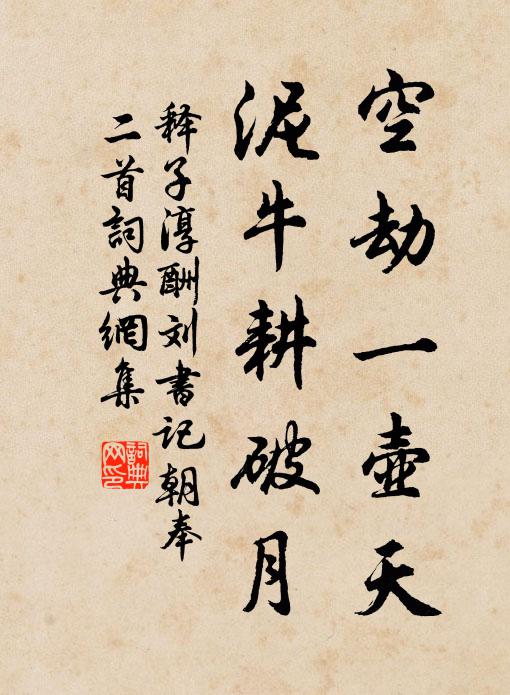 空劫一壺天
泥牛耕破月
释子淳酬刘書记朝奉
二首詞典網集
詞典
网印